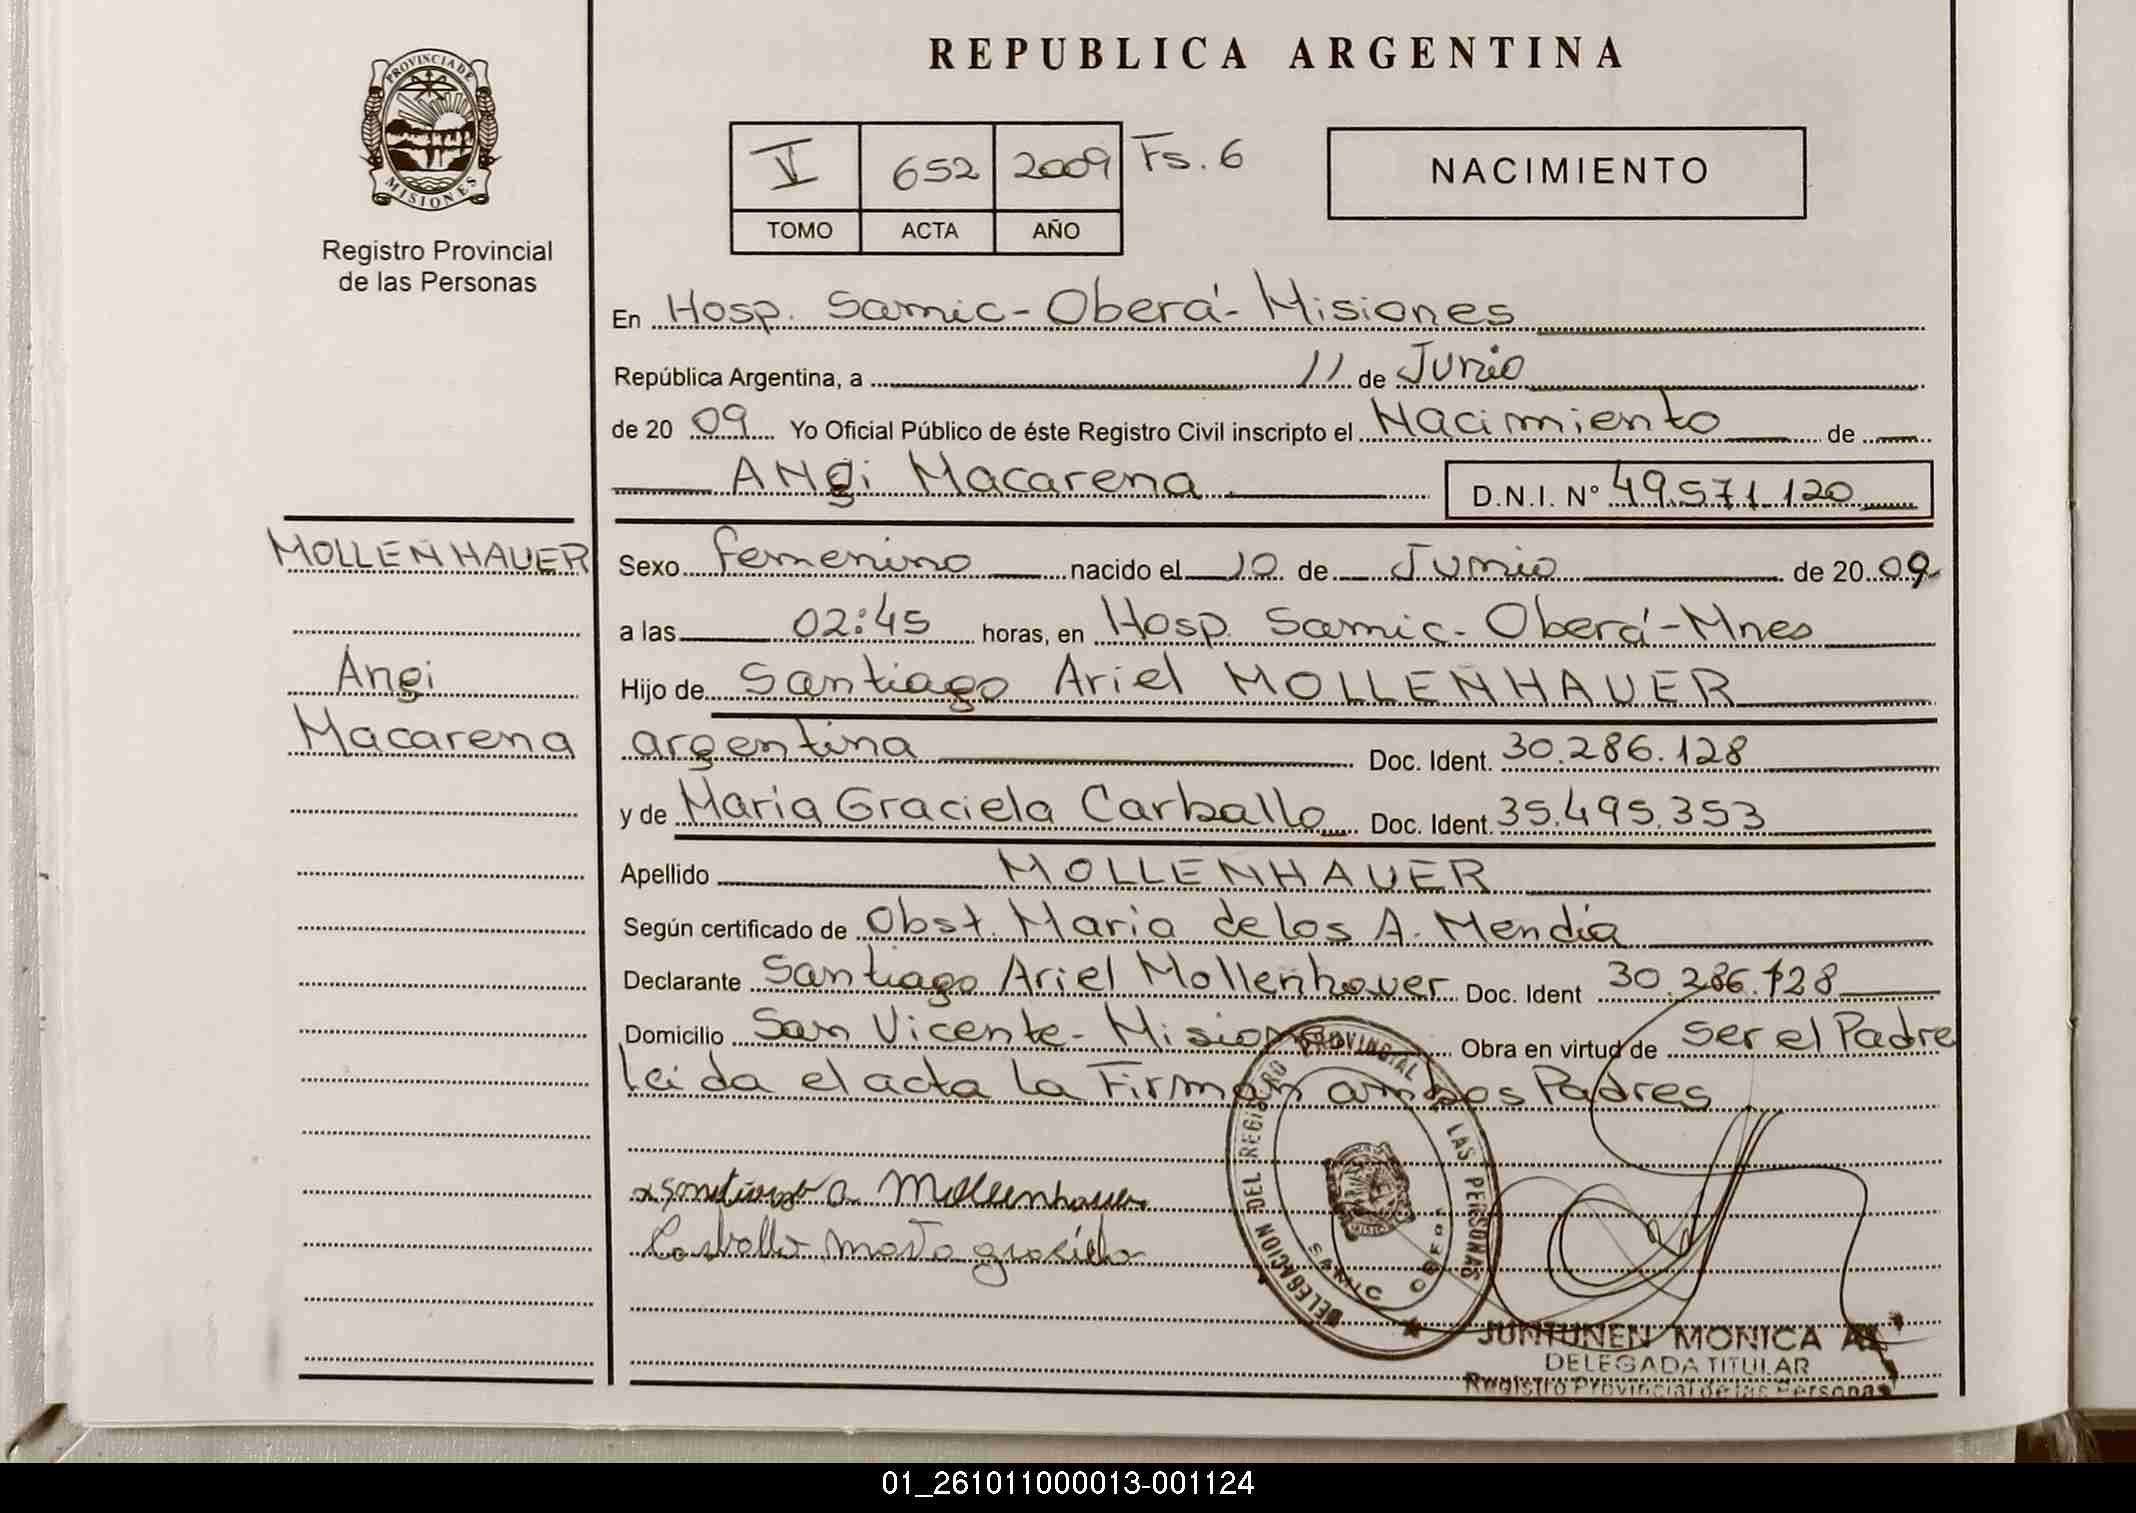 REPUBLICA ARGENTINA
PROVINCIA DE
MISIONES
Registro Provincial
de las Personas
V 652 2009 Fs. 6
TOMO ACTA AÑO
NACIMIENTO
En Hosp. Samic - Oberá - Misiones
República Argentina, a 11 de Junio
de 20 09 Yo Oficial Público de éste Registro Civil inscripto el Nacimiento de
Angi Macarena D.N.I. N° 49.571.120
MOLLENHAUER
Angi
Macarena
Sexo femenino nacido el 10 de Junio de 20 09
a las 02:45 horas, en Hosp. Samic - Oberá - Mnes
Hijo de Santiago Ariel MOLLENHAUER
argentina Doc. Ident. 30.286.128
y de Maria Graciela Carballo Doc. Ident. 35.495.353
Apellido MOLLENHAUER
Según certificado de Obst. Maria de los A. Mendia
Declarante Santiago Ariel Mollenhauer Doc. Ident 30.286.128
Domicilio San Vicente - Misiones Obra en virtud de ser el Padre
Leida el acta la Firman ambos Padres
a Mollenhauer
Carballo
DELEGACION DEL REGISTRO PROVINCIAL LAS PERSONAS
SAMIC OBERA
JUNTUNEN MONICA
DELEGADA TITULAR
Registro Provincial de las Personas
01_261011000013-001124